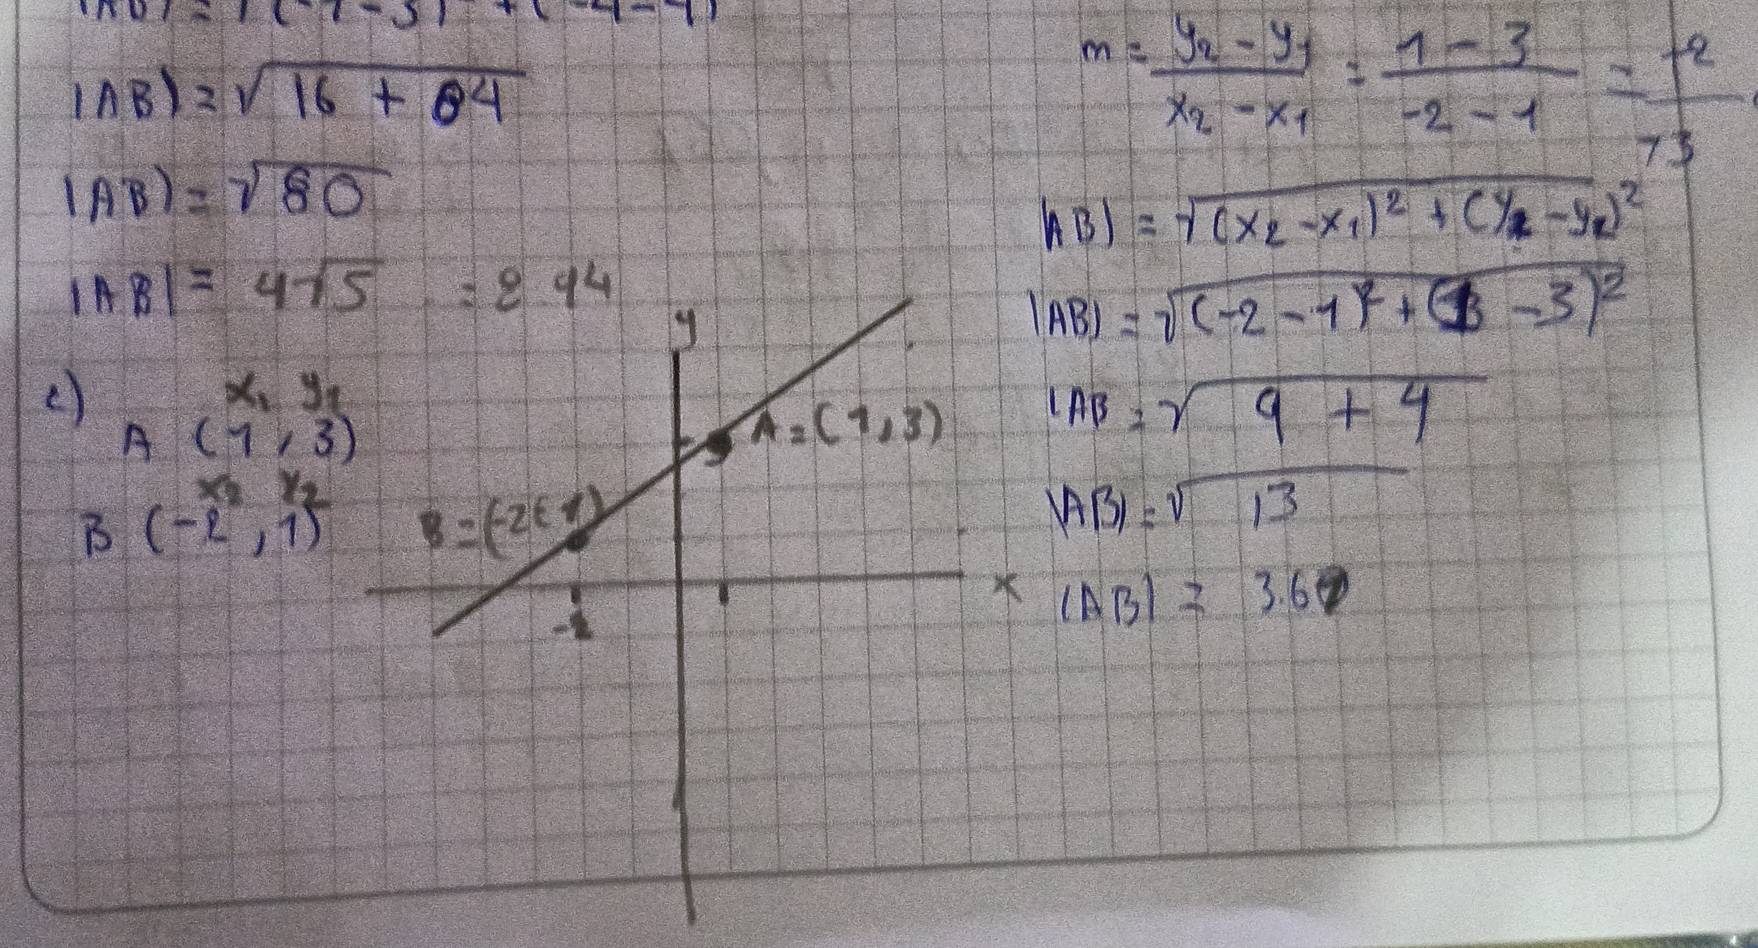 |AB| = √16 + 64
|AB| = √80
|AB| = 4√5 = 8.94
c)
x₁ y₁
A (1, 3)
x₂ y₂
B (-2, 1)
y
A = (1, 3)
B = (-2, 1)
x
m = (y₂ - y₁)/(x₂ - x₁) = (1 - 3)/(-2 - 1) =
|AB| = √(x₂ - x₁)² + (y₂ - y₁)²
|AB| = √(-2 - 1)² + (1 - 3)²
|AB = √9 + 4
|AB| = √13
|AB| = 3.60